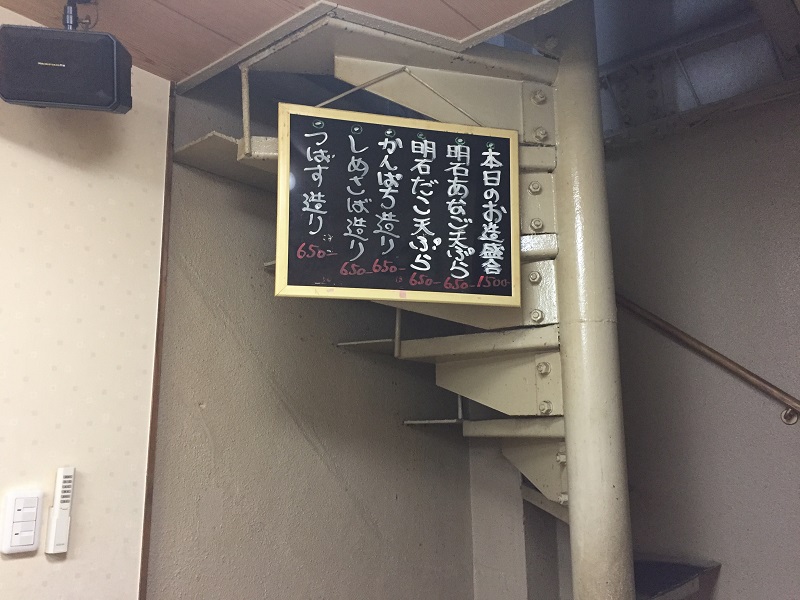 本日のお造盛合 1500
明石あなご天ぷら 650-
明石だこ天ぷら 650-
かんぱち造り 650-
しめさば造り 650-
つばす造り 650-